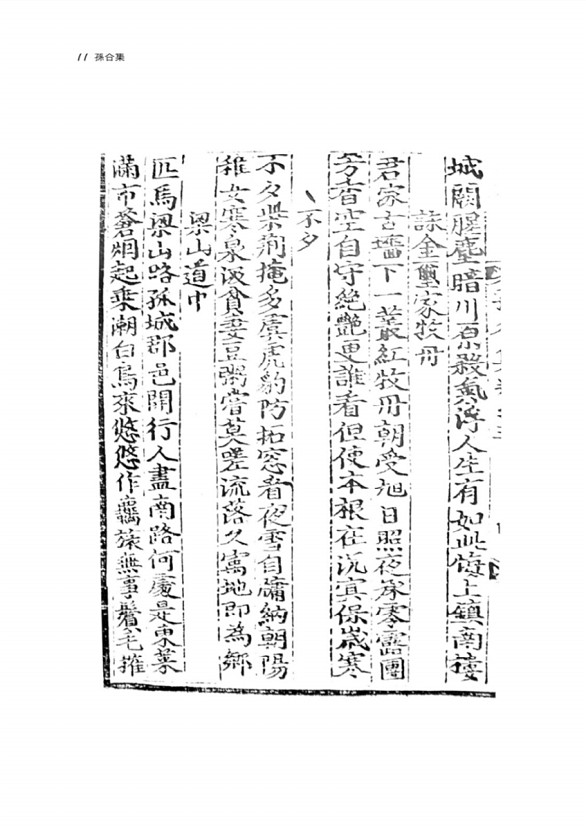 11 孫合集
城闕腥塵暗川原殺氣浮人生有如此悔上鎮南樓
詠金璽家牧丹
君家古墻下一叢紅牧丹朝受旭日照夜零露團
芳香空自守絶艷更誰看但使本根在沉冥保歲寒
不夕
不夕柴荊掩多虞虎豹防拓窓看夜雪自牖納朝陽
稚女寒泉汲貧妻豆粥嘗莫嗟流落久寓地即為鄉
梁山道中
匹馬梁山路孤城郡邑開行人盡南路何處是東萊
滿市蒼烟起乘潮白鳥來悠悠作羈旅無事鬢毛摧